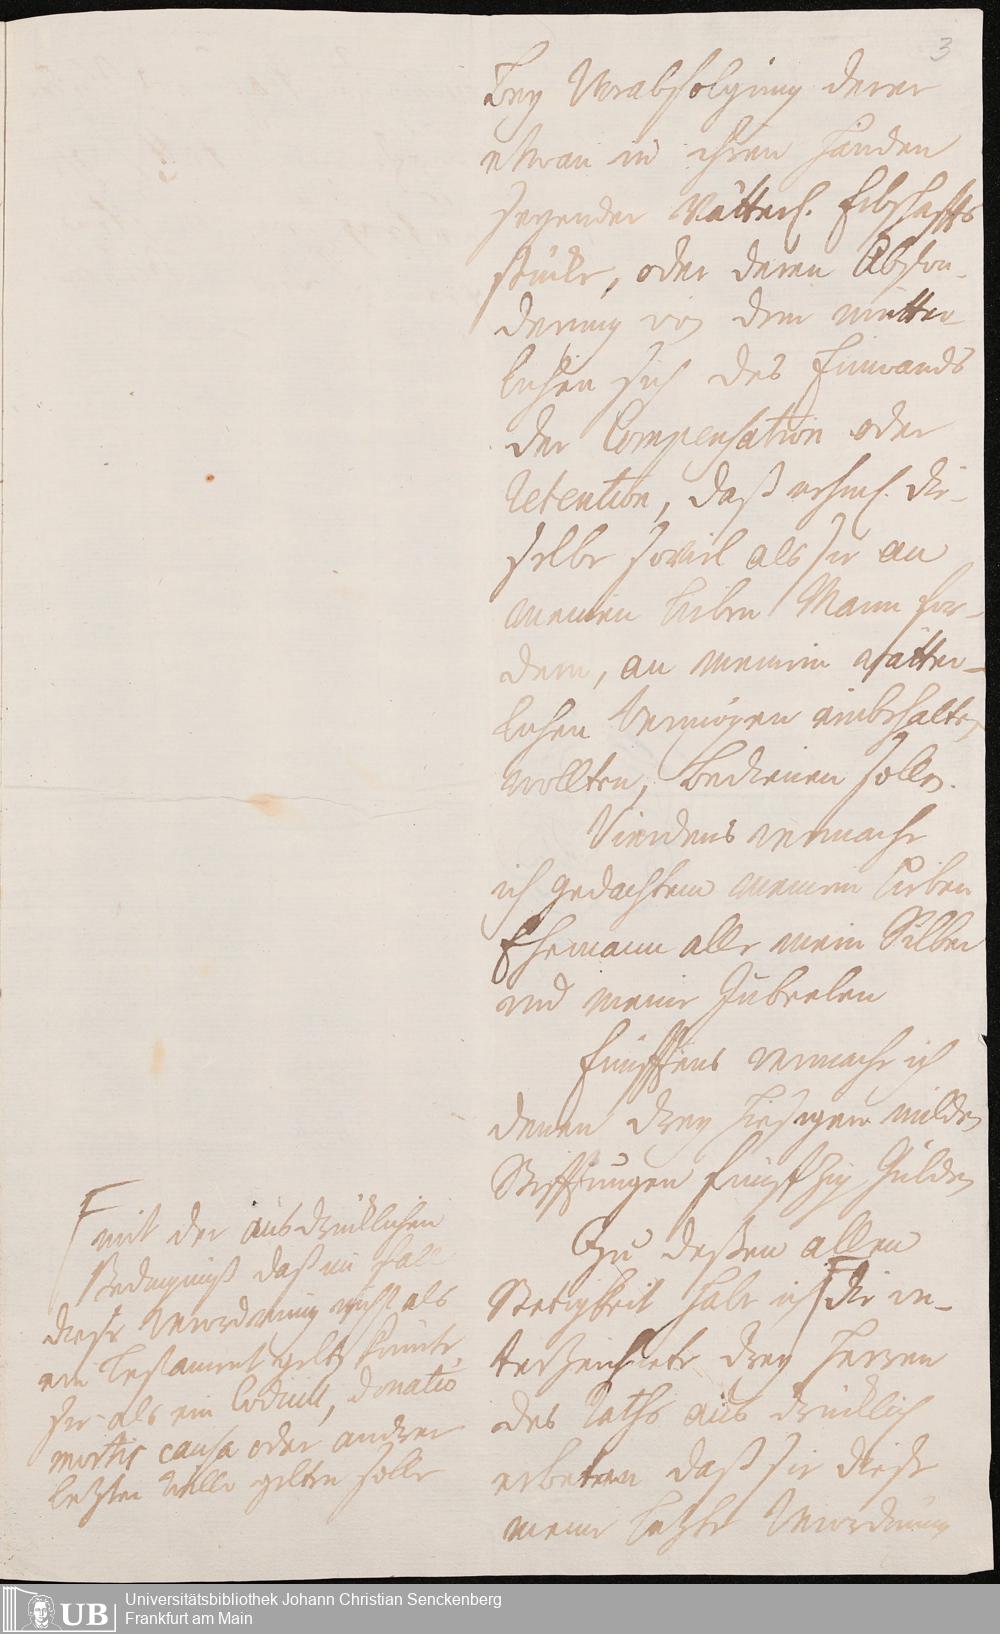 3
Bey Verabfolgung derer
etwan in ihren Handen
seyender Vätterl. Erbschaffts
stücke, oder deren Abson-
derung von dem mütter-
lichen sich des Einwands
der Compensation oder
Retention, daß nehml. die-
selbe soviel als sie an
meinen lieben Mann for-
dern, an meinem vätter-
lichen Vermögen einbehalten
wollten, bedienen sollen.
Vierdens vermache
ich gedachtem meinem lieben
Ehemann alle mein Silber
und meine Jubeelen
Fünfftens vermache ich
denen drey hiesigen milden
Stifftungen fünfzig Gulden
Zu deßen allen
Stetigkeit habe ich die un-
terzeichnete drey Herren
des Raths aus drücklich
erbetten daß sie diese
meine letzte Verordnung
mit der ausdrücklichen
Bedingniß daß im fall
diese Verordnung nicht als
ein Testament gelten könnte
sie als ein Codicill, donatio
mortis causa oder andrer
letzter Wille gelten solle
Universitätsbibliothek Johann Christian Senckenberg
Frankfurt am Main
UB